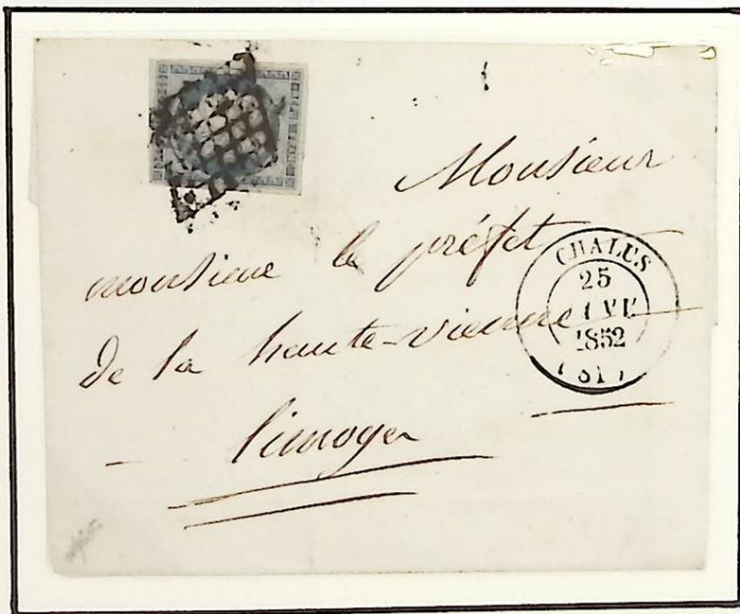 Monsieur
monsieur le préfet
de la haute-vienne
limoges
CHALUS
25
1852
(81)